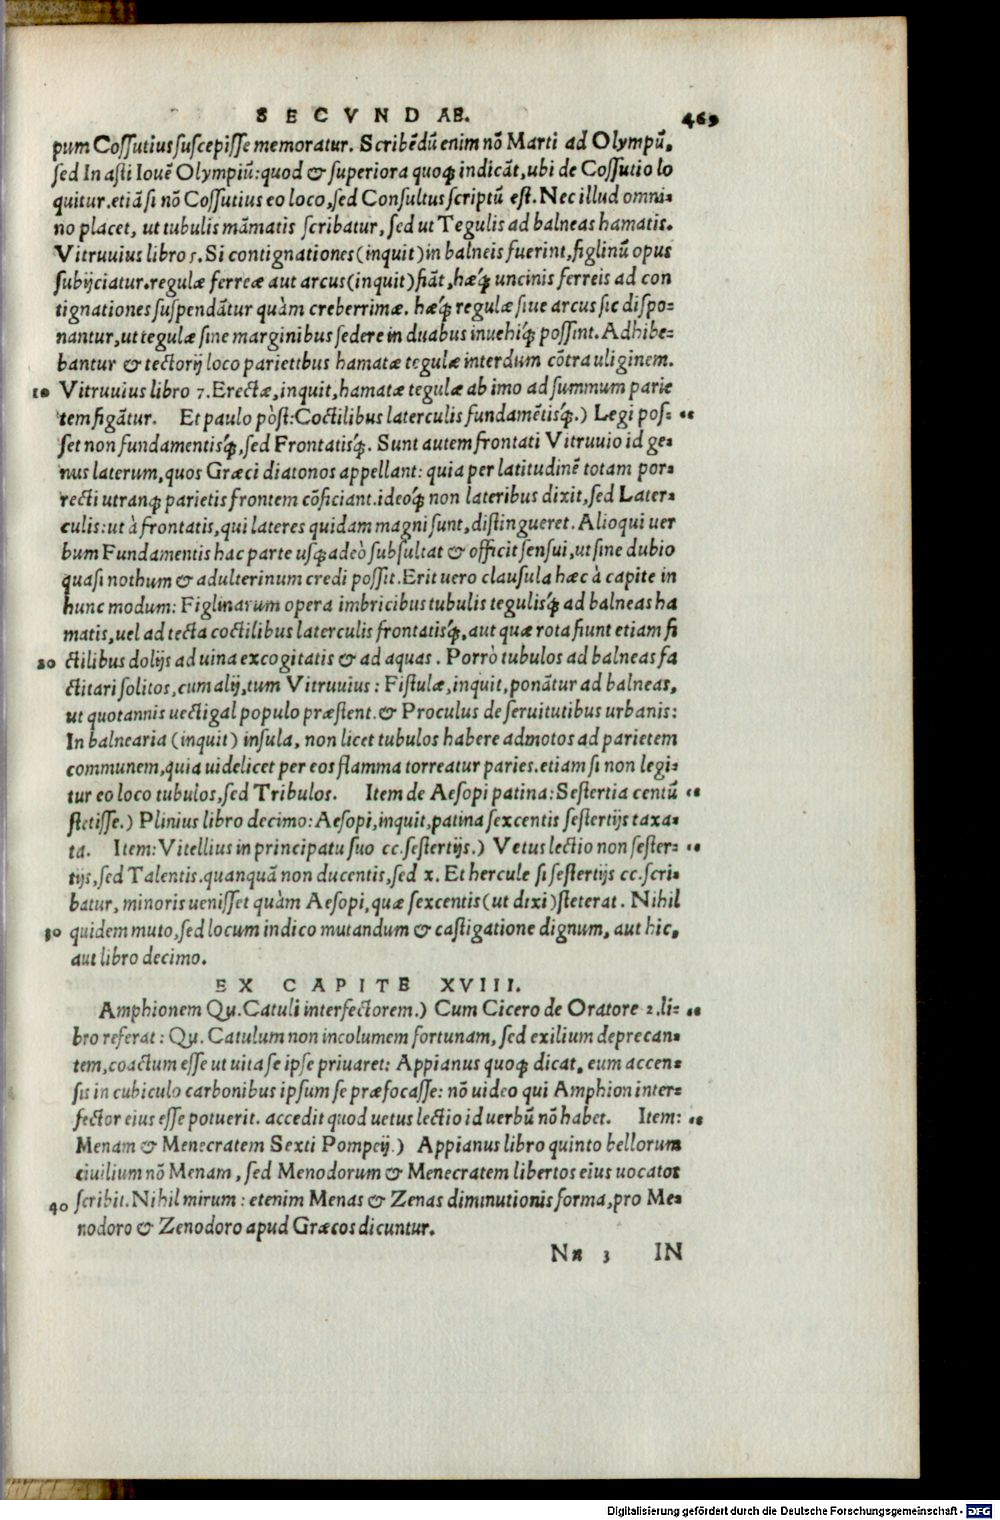 SECVNDAE. 469
pum Cossutius suscepisse memoratur. Scribẽdũ enim nõ Marti ad Olympũ,
sed In asti Iouẽ Olympiũ: quod & superiora quoq; indicãt, ubi de Cossutio lo
quitur. etiã si nõ Cossutius eo loco, sed Consultus scriptũ est. Nec illud omni-
no placet, ut tubulis mãmatis scribatur, sed ut Tegulis ad balneas hamatis.
Vitruuius libro 5. Si contignationes (inquit) in balneis fuerint, figlinũ opus
subijciatur. regulæ ferreæ aut arcus (inquit) fiãt, hæq́; uncinis ferreis ad con
tignationes suspendãtur quàm creberrimæ. hæq́; regulæ siue arcus sic dispo-
nantur, ut tegulæ sine marginibus sedere in duabus inuehiq́; possint. Adhibe-
bantur & tectorij loco parietibus hamatæ tegulæ interdum cõtra uliginem.
10 Vitruuius libro 7. Erectæ, inquit, hamatæ tegulæ ab imo ad summum parie
tem figãtur. Et paulo pòst: Coctilibus laterculis fundamẽtisq́;.) Legi pos- "
set non fundamentisq́;, sed Frontatisq́;. Sunt autem frontati Vitruuio id ge-
nus laterum, quos Græci diatonos appellant: quia per latitudinẽ totam por-
recti utranq; parietis frontem cõficiant. ideoq́; non lateribus dixit, sed Later-
culis: ut à frontatis, qui lateres quidam magni sunt, distingueret. Alioqui uer
bum Fundamentis hac parte usq; adeò subsultat & officit sensui, ut sine dubio
quasi nothum & adulterinum credi possit. Erit uero clausula hæc à capite in
hunc modum: Figlinarum opera imbricibus tubulis tegulisq́; ad balneas ha
matis, uel ad tecta coctilibus laterculis frontatisq́;, aut quæ rota fiunt etiam fi
20 ctilibus dolijs ad uina excogitatis & ad aquas. Porrò tubulos ad balneas fa
ctitari solitos, cum alij, tum Vitruuius: Fistulæ, inquit, ponãtur ad balneas,
ut quotannis uectigal populo præstent. & Proculus de seruitutibus urbanis:
In balnearia (inquit) insula, non licet tubulos habere admotos ad parietem
communem, quia uidelicet per eos flamma torreatur paries. etiam si non legi-
tur eo loco tubulos, sed Tribulos. Item de Aesopi patina: Sestertia centũ "
stetisse.) Plinius libro decimo: Aesopi, inquit, patina sexcentis sestertijs taxa-
ta. Item: Vitellius in principatu suo cc. sestertijs.) Vetus lectio non sester- "
tijs, sed Talentis. quanquã non ducentis, sed x. Et hercule si sestertijs cc. scri-
batur, minoris uenisset quàm Aesopi, quæ sexcentis (ut dixi) steterat. Nihil
30 quidem muto, sed locum indico mutandum & castigatione dignum, aut hic,
aut libro decimo.
EX CAPITE XVIII.
Amphionem Qu. Catuli interfectorem.) Cum Cicero de Oratore 2. li- "
bro referat: Qu. Catulum non incolumem fortunam, sed exilium deprecan-
tem, coactum esse ut uita se ipse priuaret: Appianus quoq; dicat, eum accen-
sis in cubiculo carbonibus ipsum se præfocasse: nõ uideo qui Amphion inter-
fector eius esse potuerit. accedit quod uetus lectio id uerbũ nõ habet. Item: "
Menam & Menecratem Sexti Pompeij.) Appianus libro quinto bellorum
ciuilium nõ Menam, sed Menodorum & Menecratem libertos eius uocatos
40 scribit. Nihil mirum: etenim Menas & Zenas diminutionis forma, pro Me-
nodoro & Zenodoro apud Græcos dicuntur.
Nn 3 IN
Digitalisierung gefördert durch die Deutsche Forschungsgemeinschaft - DFG